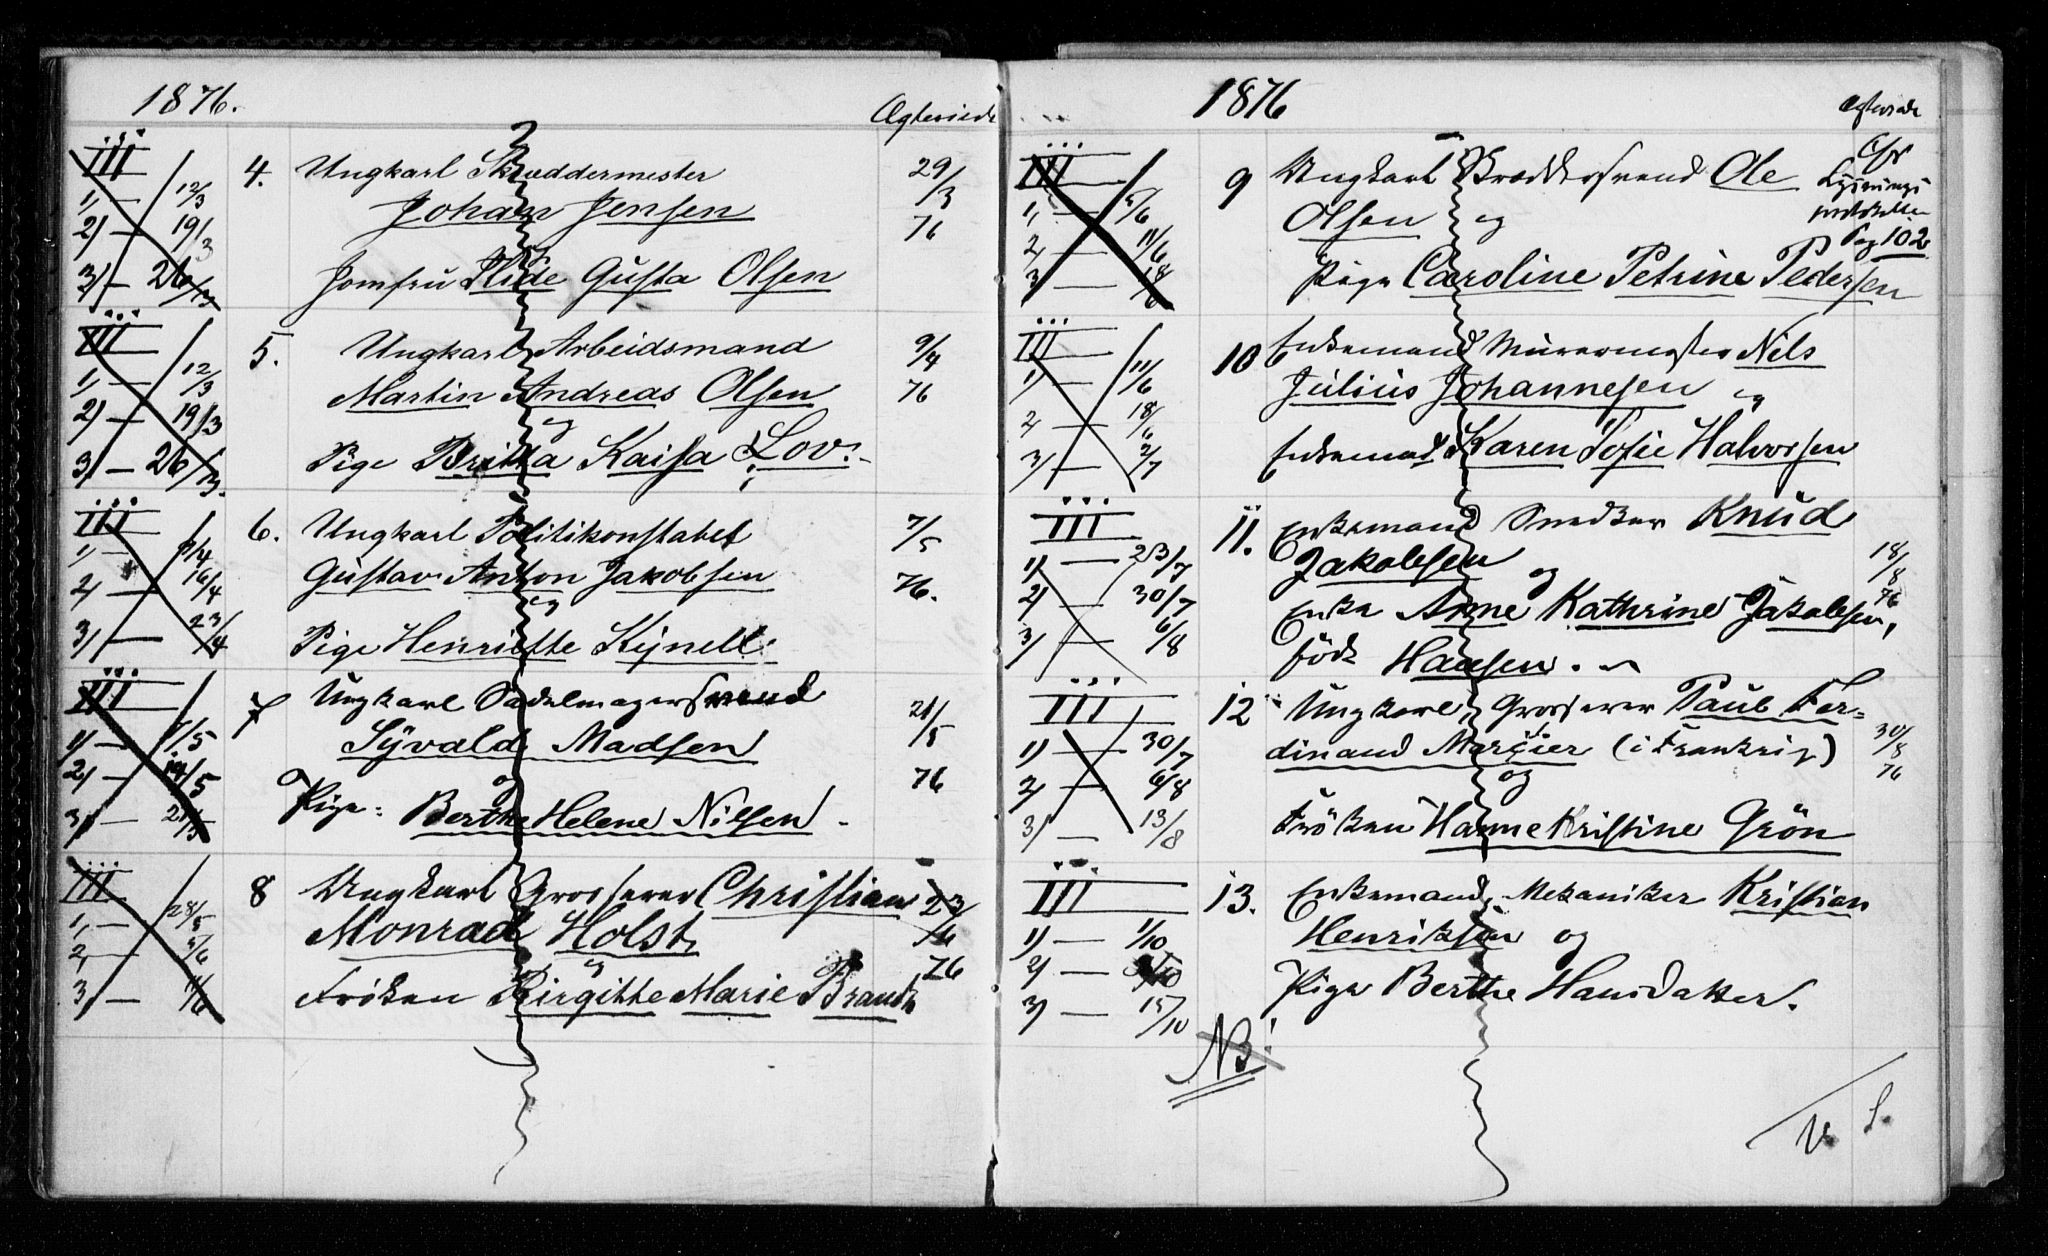 1876.
Ægteviede
III
1, — 12/3
2) — 19/3
3) — 26/3
4. Ungkarl Skræddermester
Johan Jensen
og
Jomfru Gusta Olsen
29/3 76
III
1, — 12/3
2) — 19/3
3) — 26/3.
5. Ungkarl Arbeidsmand
Martin Andreas Olsen
og
Pige Britta Kaisa Lov.
9/4 76
III
1) — 9/4
2) — 16/4
3) — 23/4
6. Ungkarl Politikonstabel
Gustav Anton Jakobsen
og
Pige Henriette Kynell.
7/5 76.
III
1) — 7/5
2) — 14/5
3) — 21/5
7 Ungkarl Sadelmagersvend
Syvald Madsen
og
Pige: Berthe Helene Nilsen -
21/5 76
III
1, — 28/5
2, — 5/6
3 — 11/6
8 Ungkarl Grosserer Christian
Monrad Holst
og
Frøken Birgitte Marie Brandt
23/6 76
1876
Ægteviede
III
1, — 5/6
2, — 11/6
3 — 18/6
9 Ungkarl Ole
Olsen og
Pige Caroline Petrine Pedersen
Lysnings
protokollen
Pag 102
III
1) — 11/6
2 — 18/6
3) — 2/7
10 Enkemand Murermester Nils
Julius Johannesen og
Karen Sofie Halvorsen
III
1) — 23/7
2) — 30/7
3) — 6/8
11. Enkemand Snedker Knud
Jakobsen og
Enke Anne Kathrine Jakobsen,
født Hansen.
18/8 76
III
1) — 30/7
2) — 6/8
3) — 13/8
12 Ungkarl, Grosserer Paul Fer-
dinand Marcier (i Frankrig)
og
Frøken Hanne Kristine Grön
30/8 76
III
1) — 1/10
2) — 8/10
3) — 15/10
13. Enkemand, Mekaniker Kristian
Henriksen og
Pige Berthe Hansdatter.
NB!
V. S.